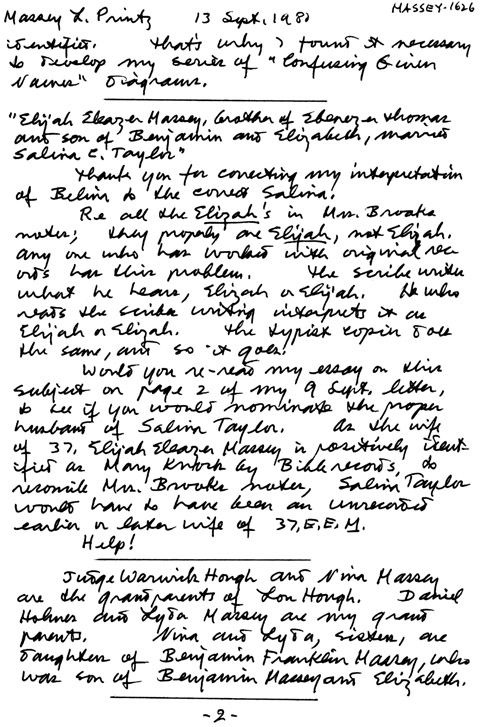 Massey & Printz 13 Sept, 1980 MASSEY-1626
identifier. That's why I found it necessary
to develop my series of "Confusing Given
Names" Diagrams.
"Elijah Eleazer Massey, brother of Ebenezer Thomas
and son of Benjamin and Elizabeth, married
Salina C. Taylor"
Thank you for correcting my interpretation
of Belina to the correct Salina.
Re all the Elizah's in Mrs. Brooks
notes; they properly are Elijah, not Elizah.
Any one who has worked with original rec-
ords has this problem. The scribe writes
what he hears, Elizah or Elijah. He who
reads the scribe writing interprets it as
Elijah or Elizah. The typist copier does
the same, and so it goes!
Would you re-read my essay on this
subject on page 2 of my 9 Sept. letter,
to see if you would nominate the proper
husband of Salina Taylor. As the wife
of 37, Elijah Eleazer Massey is positively ident-
ified as Mary Knock by Bible records, to
reconcile Mrs. Brooks notes, Salina Taylor
would have to have been an unrecorded
earlier or later wife of 37, E.E.M.
Help!
Judge Warwick Hough and Nina Massey
are the grandparents of Lon Hough. Daniel
Holmes and Lyda Massey are my grand
parents. Nina and Lyda, sisters, are
daughters of Benjamin Franklin Massey, who
was son of Benjamin Massey and Elizabeth.
-2-